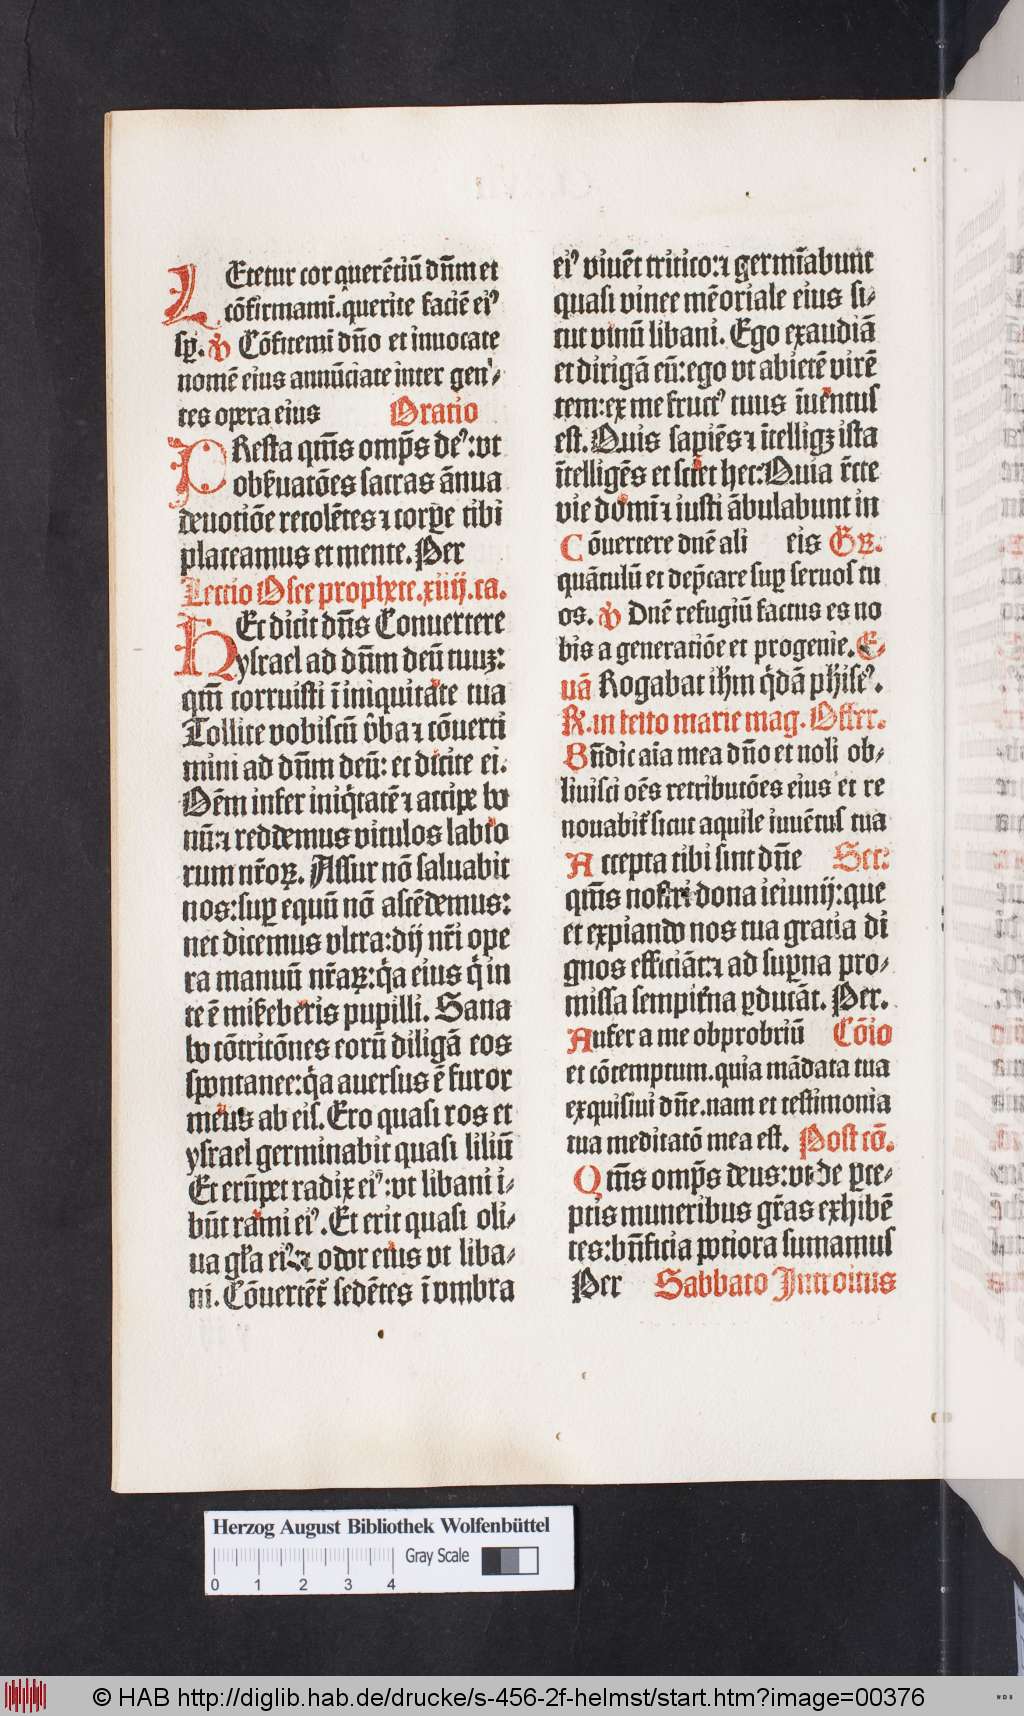 LEtetur cor querētiū dn̄m et
cōfirmami.querite faciē eiꝰ
sꝑ. ꝟ Cōfitemī dn̄o et inuocate
nomē eius annūciate inter gen-
tes opera eius Oratio
PResta qm̄s omp̄s deꝰ:vt
obẜuatōes sacras ānua
deuotiōe recolētes ⁊ corꝑe tibi
placeamus et mente. Per
Lectio Osee prophete.xiiij.ca.
HEc dicit dn̄s Conuertere
ysrael ad dn̄m deū tuuꝫ:
qm̄ corruisti ī iniquitate tua
Tollite vobiscū v̄ba ⁊ cōuerti
mini ad dn̄m deū: et dicite ei.
Oēm infer iniq̄tatē ⁊ accipe bo
nū:⁊ reddemus vitulos labio
rum nr̄oꝝ. Assur nō saluabit
nos:suꝑ equū nō ascēdemus:
nec dicemus vltra:dij nr̄i ope
ra manuū nr̄aꝝ:q̄a eius q̄ in
te ē miẜeberis pupilli. Sana
bo cōtritōnes eorū diligā eos
spontanee:q̄a auersus ē furor
meus ab eis. Ero quasi ros et
ysrael germinabit quasi liliū
Et erūpet radix eiꝰ:vt libani i-
būt rami eiꝰ. Et erit quasi oli-
ua gl̄a eiꝰ:⁊ odor eius vt liba-
ni. Cōuertēt̄ sedētes ī vmbra
eiꝰ viuēt tritico:⁊ germīabunt
quasi vinee mēoriale eius si-
cut vinū libani. Ego exaudiā
et dirigā eū:ego vt abietē virē
tem:ex me fructꝰ tuus īuentus
est. Quis sapiēs ⁊ ītelligꝫ ista
ītelligēs et sciet hec: Quia r̄cte
vie domī ⁊ iusti ābulabunt in
Cōuertere dnē ali eis Gꝝ.
quātulū et dep̄care suꝑ seruos tu
os. ꝟ Dnē refugiū factus es no
bis a generatiōe et progenie. E-
uā Rogabat ih̄m q̄dā ph̄iseꝰ.
R̄. in festo marie mag. Offer.
Bn̄dic aīa mea dn̄o et noli ob-
liuisci oēs retributōes eius et re
nouabit̄ sicut aquile iuuētus tua
Accepta tibi sint dn̄e Secr:
qm̄s nostri dona ieiunij:que
et expiando nos tua gratia di
gnos efficiāt:⁊ ad suꝑna pro-
missa sempit̄na ꝑducāt. Per.
Aufer a me obprobriū Cōio
et cōtemptum.quia mādata tua
exquisiui dn̄e.nam et testimonia
tua meditatō mea est. Post cō.
Qm̄s omp̄s deus:vt de ꝑce-
ptis muneribus gr̄as exhibē
tes:bn̄ficia potiora sumamus
Per Sabbato Introitus
Herzog August Bibliothek Wolfenbüttel
0 1 2 3 4 Gray Scale
© HAB http://diglib.hab.de/drucke/s-456-2f-helmst/start.htm?image=00376